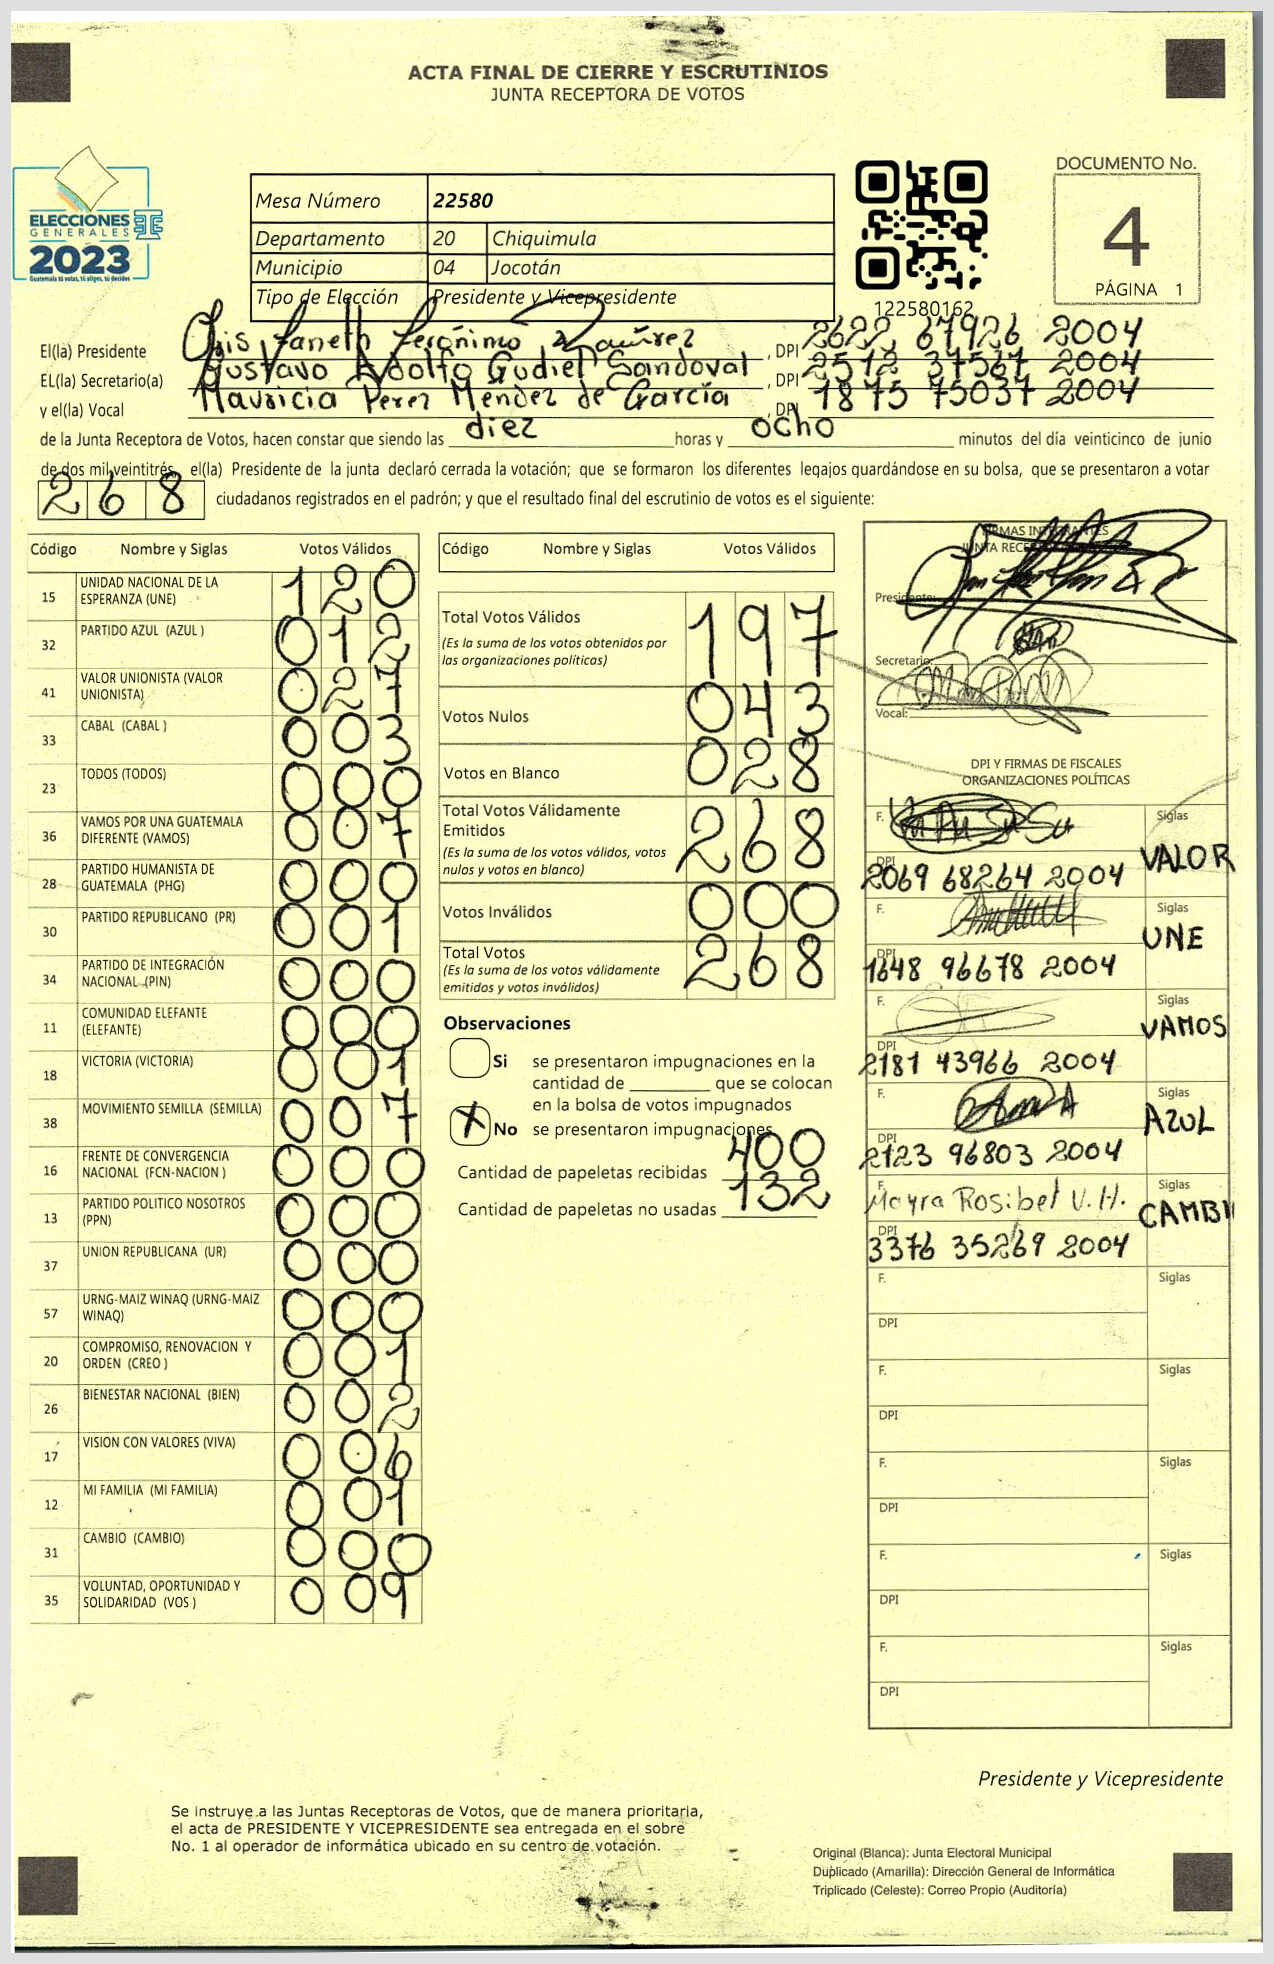 ACTA FINAL DE CIERRE Y ESCRUTINIOS
JUNTA RECEPTORA DE VOTOS
ELECCIONES
GENERALES
2023
Guatemala tú votas, tú eliges, tú decides
Mesa Número 22580
Departamento 20 Chiquimula
Municipio 04 Jocotán
Tipo de Elección Presidente y Vicepresidente
122580162
DOCUMENTO No.
4
PÁGINA 1
El(la) Presidente Janeth Jerónimo Ramírez , DPI 2622 67926 2004
EL(la) Secretario(a) Gustavo Adolfo Gudiel Sandoval , DPI 2512 37567 2004
y el(la) Vocal Mauricia Perez Mendez de García , DPI 1875 75037 2004
de la Junta Receptora de Votos, hacen constar que siendo las diez horas y ocho minutos del día veinticinco de junio
de dos mil veintitrés, el(la) Presidente de la junta declaró cerrada la votación; que se formaron los diferentes legajos guardándose en su bolsa, que se presentaron a votar
268 ciudadanos registrados en el padrón; y que el resultado final del escrutinio de votos es el siguiente:
Código Nombre y Siglas Votos Válidos
15 UNIDAD NACIONAL DE LA ESPERANZA (UNE) 120
32 PARTIDO AZUL (AZUL ) 012
41 VALOR UNIONISTA (VALOR UNIONISTA) 027
33 CABAL (CABAL ) 003
23 TODOS (TODOS) 000
36 VAMOS POR UNA GUATEMALA DIFERENTE (VAMOS) 007
28 PARTIDO HUMANISTA DE GUATEMALA (PHG) 000
30 PARTIDO REPUBLICANO (PR) 001
34 PARTIDO DE INTEGRACIÓN NACIONAL (PIN) 000
11 COMUNIDAD ELEFANTE (ELEFANTE) 000
18 VICTORIA (VICTORIA) 001
38 MOVIMIENTO SEMILLA (SEMILLA) 007
16 FRENTE DE CONVERGENCIA NACIONAL (FCN-NACION ) 000
13 PARTIDO POLITICO NOSOTROS (PPN) 000
37 UNION REPUBLICANA (UR) 000
57 URNG-MAIZ WINAQ (URNG-MAIZ WINAQ) 000
20 COMPROMISO, RENOVACION Y ORDEN (CREO ) 001
26 BIENESTAR NACIONAL (BIEN) 002
17 VISION CON VALORES (VIVA) 006
12 MI FAMILIA (MI FAMILIA) 001
31 CAMBIO (CAMBIO) 000
35 VOLUNTAD, OPORTUNIDAD Y SOLIDARIDAD (VOS ) 009
Código Nombre y Siglas Votos Válidos
Total Votos Válidos 197
(Es la suma de los votos obtenidos por
las organizaciones políticas)
Votos Nulos 043
Votos en Blanco 028
Total Votos Válidamente
Emitidos 268
(Es la suma de los votos válidos, votos
nulos y votos en blanco)
Votos Inválidos 000
Total Votos 268
(Es la suma de los votos válidamente
emitidos y votos inválidos)
Observaciones
Si se presentaron impugnaciones en la
cantidad de ________ que se colocan
en la bolsa de votos impugnados
X No se presentaron impugnaciones
Cantidad de papeletas recibidas 400
Cantidad de papeletas no usadas 132
FIRMAS INTEGRANTES
JUNTA
Presidente:
Secretario:
Vocal:
DPI Y FIRMAS DE FISCALES
ORGANIZACIONES POLÍTICAS
F. Siglas VALOR
DPI 2069 68264 2004
F. Siglas UNE
DPI 1648 96678 2004
F. Siglas VAMOS
DPI 2181 43966 2004
F. Siglas AZUL
DPI 2123 96803 2004
F. Mayra Rosibel V. H. Siglas CAMBI
DPI 3376 35269 2004
F. Siglas
DPI
F. Siglas
DPI
F. Siglas
DPI
F. Siglas
DPI
F. Siglas
DPI
Presidente y Vicepresidente
Se instruye a las Juntas Receptoras de Votos, que de manera prioritaria,
el acta de PRESIDENTE Y VICEPRESIDENTE sea entregada en el sobre
No. 1 al operador de informática ubicado en su centro de votación.
Original (Blanca): Junta Electoral Municipal
Duplicado (Amarilla): Dirección General de Informática
Triplicado (Celeste): Correo Propio (Auditoría)